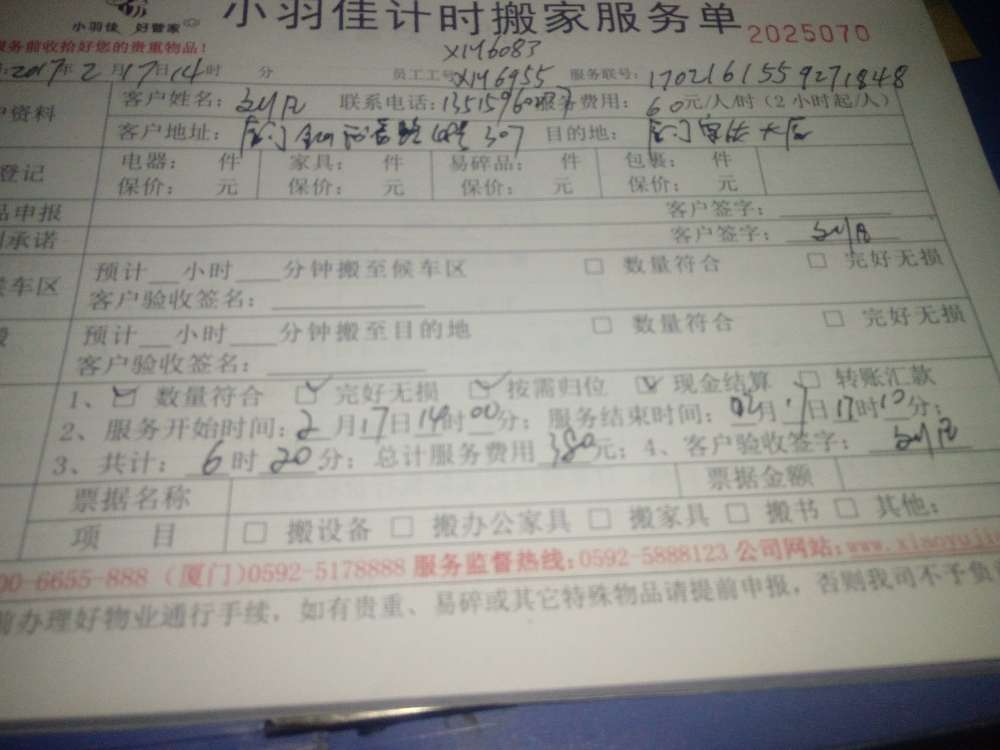 小羽佳 好管家
小羽佳计时搬家服务单 2025070
服务前收拾好您的贵重物品!
XM6083
2017年2月17日14时 分 员工工号XM6955 服务联号:1702161559271848
户资料 客户姓名: 联系电话: 服务费用: 60元/人/时(2小时起/人)
客户地址:厦门 307 目的地:厦门
登记 电器: 件 家具: 件 易碎品: 件 包裹: 件
保价: 元 保价: 元 保价: 元 保价: 元
品申报 客户签字:
承诺 客户签字:
候车区 预计 小时 分钟搬至候车区 □ 数量符合 □ 完好无损
客户验收签名:
预计 小时 分钟搬至目的地 □ 数量符合 □ 完好无损
客户验收签名:
1、☑ 数量符合 ☑ 完好无损 ☑ 按需归位 ☑ 现金结算 □ 转账汇款
2、服务开始时间:2月17日14时00分;服务结束时间:02月17日17时10分;
3、共计:6时20分;总计服务费用380元;4、客户验收签字:
票据名称 票据金额
项 目 □ 搬设备 □ 搬办公家具 □ 搬家具 □ 搬书 □ 其他:
00-6655-888(厦门)0592-5178888 服务监督热线:0592-5888123 公司网站:www.xiaoyuji
前办理好物业通行手续,如有贵重、易碎或其它特殊物品请提前申报,否则我司不予负